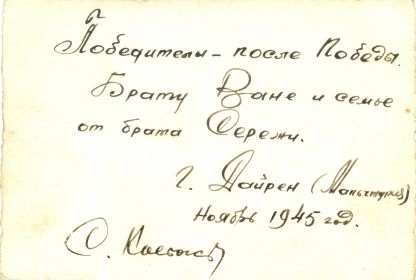 Победители - после Победы.
Брату Ване и семье
от брата Сережи.
г. Дайрен (Маньчжурия)
Ноябрь 1945 год.
С.